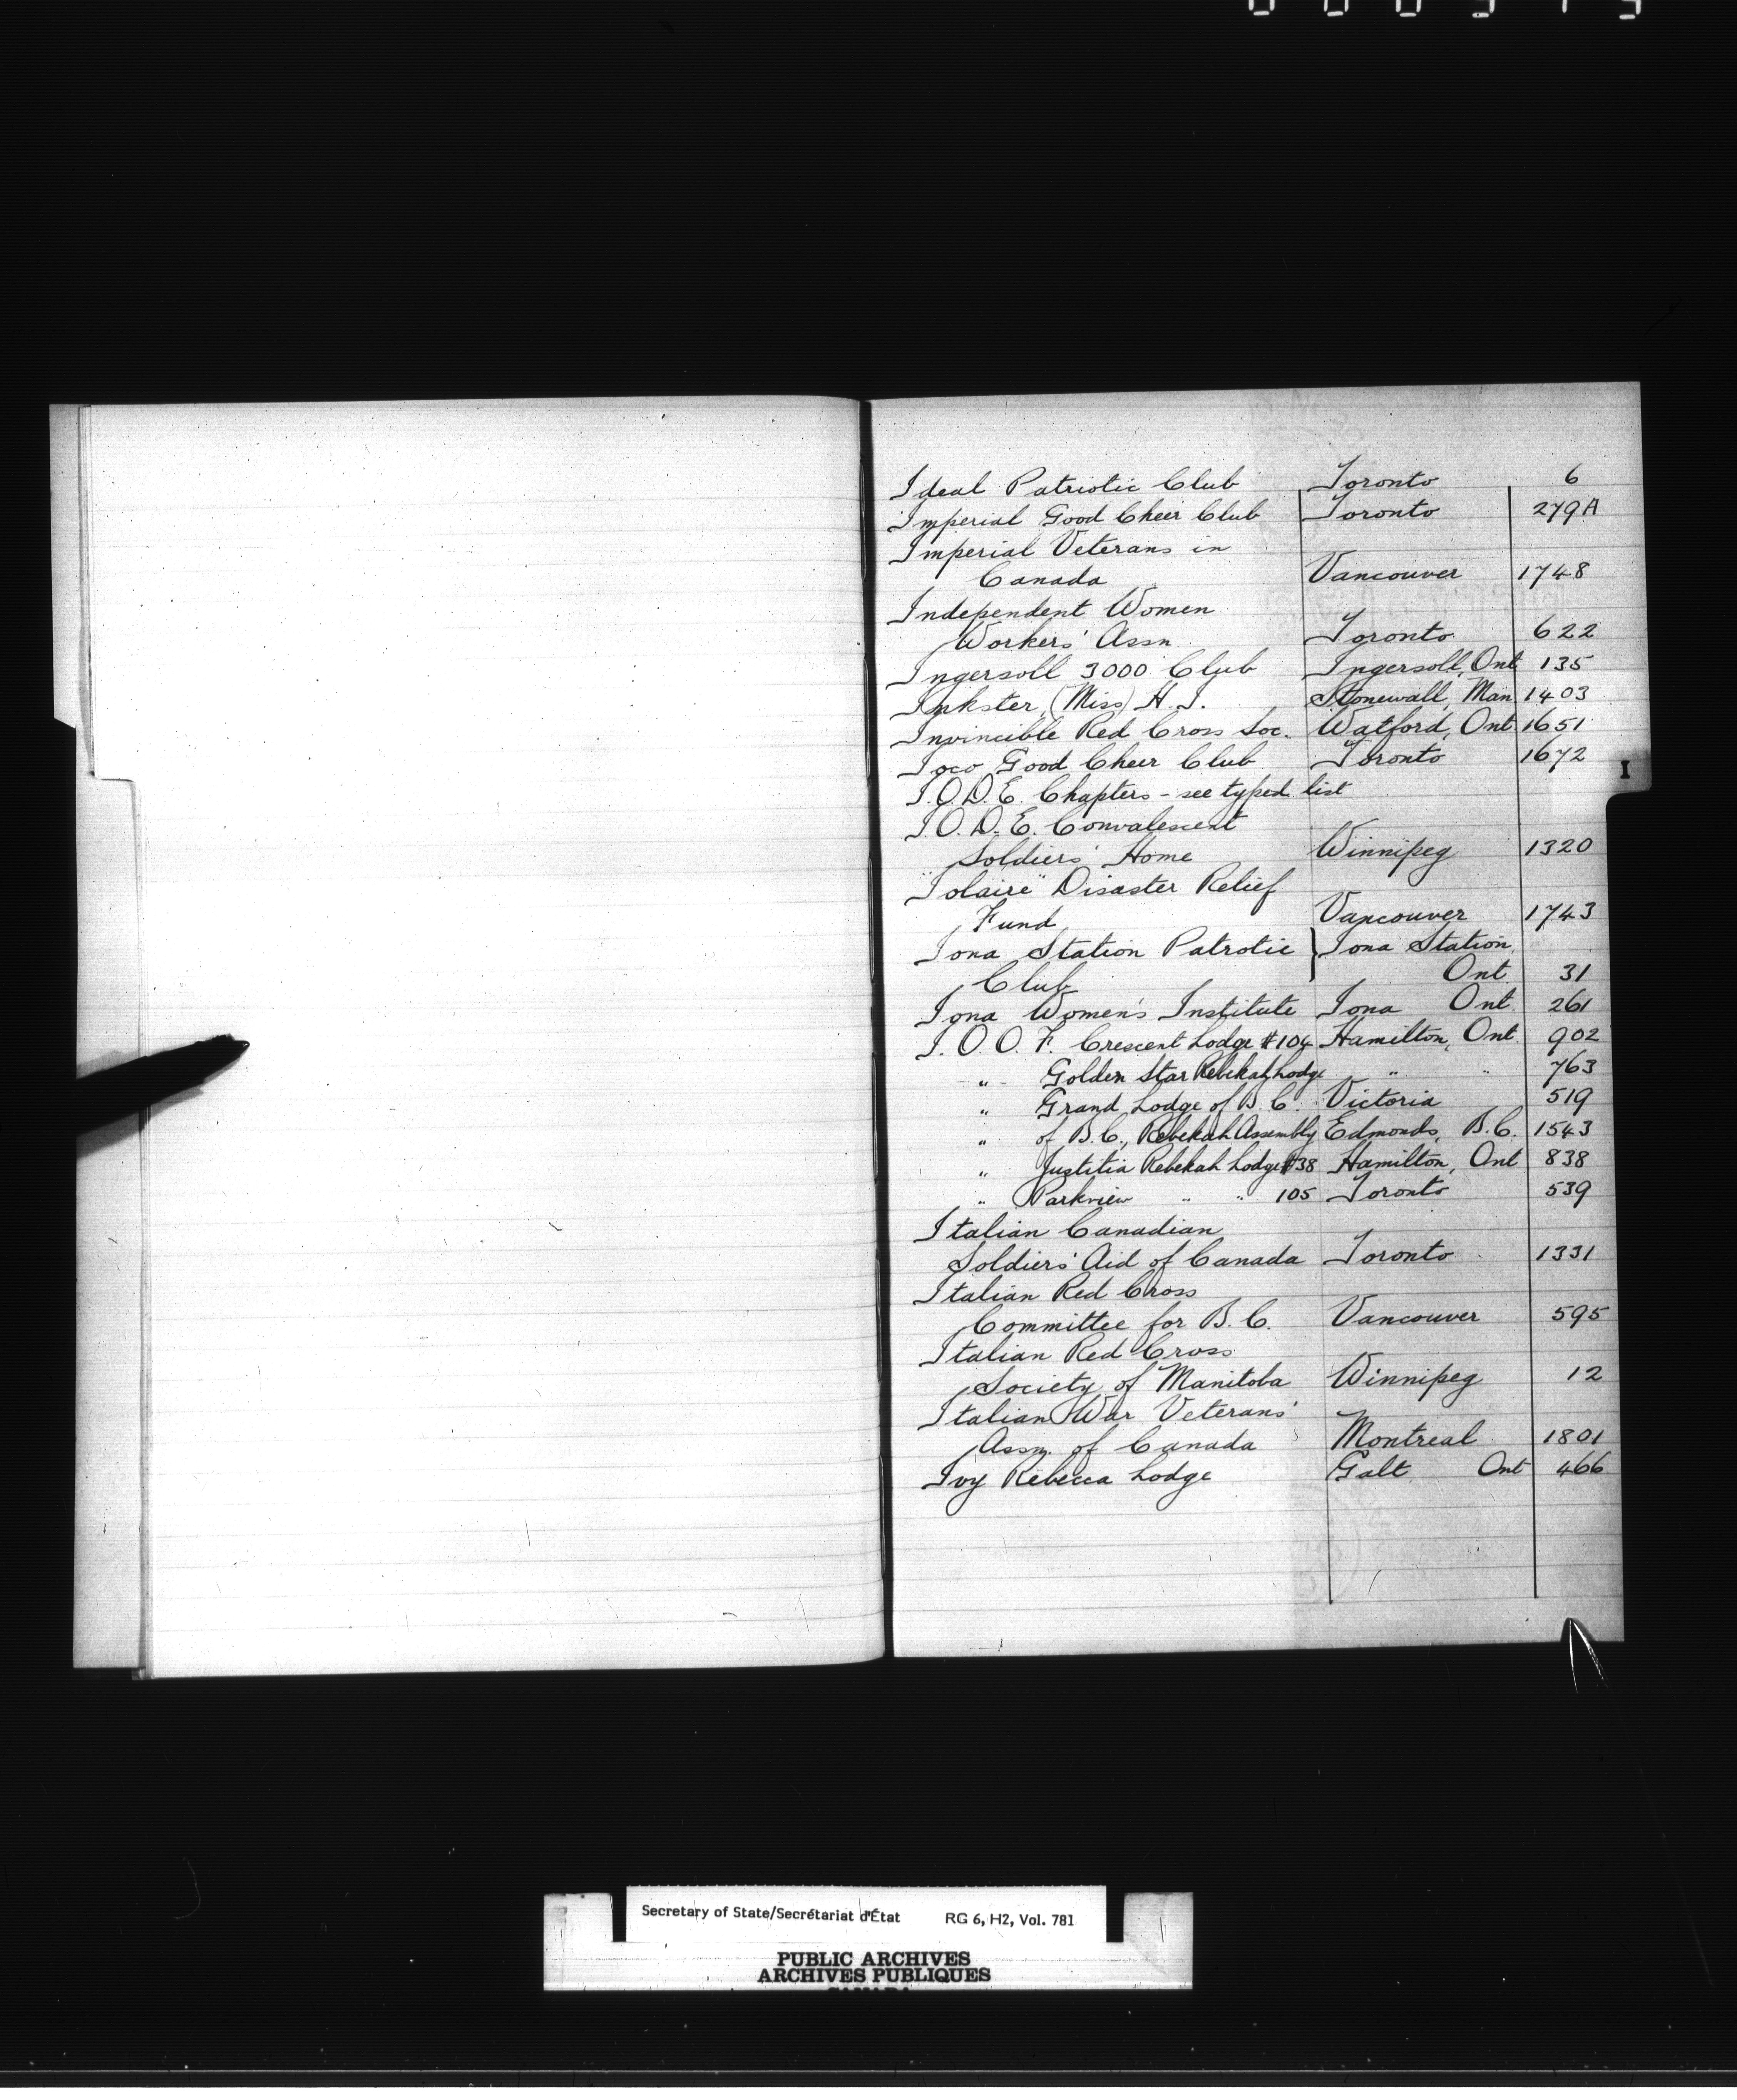 Ideal Patriotic Club Toronto 6
Imperial Good Cheer Club Toronto 279A
Imperial Veterans in
Canada Vancouver 1748
Independent Women
Workers' Assn. Toronto 622
Ingersoll 3000 Club Ingersoll, Ont. 135
Inkster, (Miss) H. I. Stonewall, Man. 1403
Invincible Red Cross Soc. Watford, Ont. 1651
Ioco Good Cheer Club Toronto 1672
I.O.D.E. Chapters - see typed list
I.O.D.E. Convalescent
Soldiers' Home Winnipeg 1320
"Iolaire" Disaster Relief
Fund Vancouver 1743
Iona Station Patrotic } Iona Station,
Club Ont. 31
Iona Women's Institute Iona Ont. 261
I.O.O.F. Crescent Lodge #104 Hamilton, Ont. 902
" Golden Star Rebekah Lodge " " 763
" Grand Lodge of B.C. Victoria 519
" of B.C., Rebekah Assembly Edmonds, B.C. 1543
" Justitia Rebekah Lodge #38 Hamilton, Ont 838
" Parkview " " 105 Toronto 539
Italian Canadian
Soldiers' Aid of Canada Toronto 1331
Italian Red Cross
Committee for B.C. Vancouver 595
Italian Red Cross
Society of Manitoba Winnipeg 12
Italian War Veterans'
Assn. of Canada Montreal 1801
Ivy Rebecca Lodge Galt Ont 466
I
Secretary of State/Secrétariat d'État RG 6, H2, Vol. 781
PUBLIC ARCHIVES
ARCHIVES PUBLIQUES